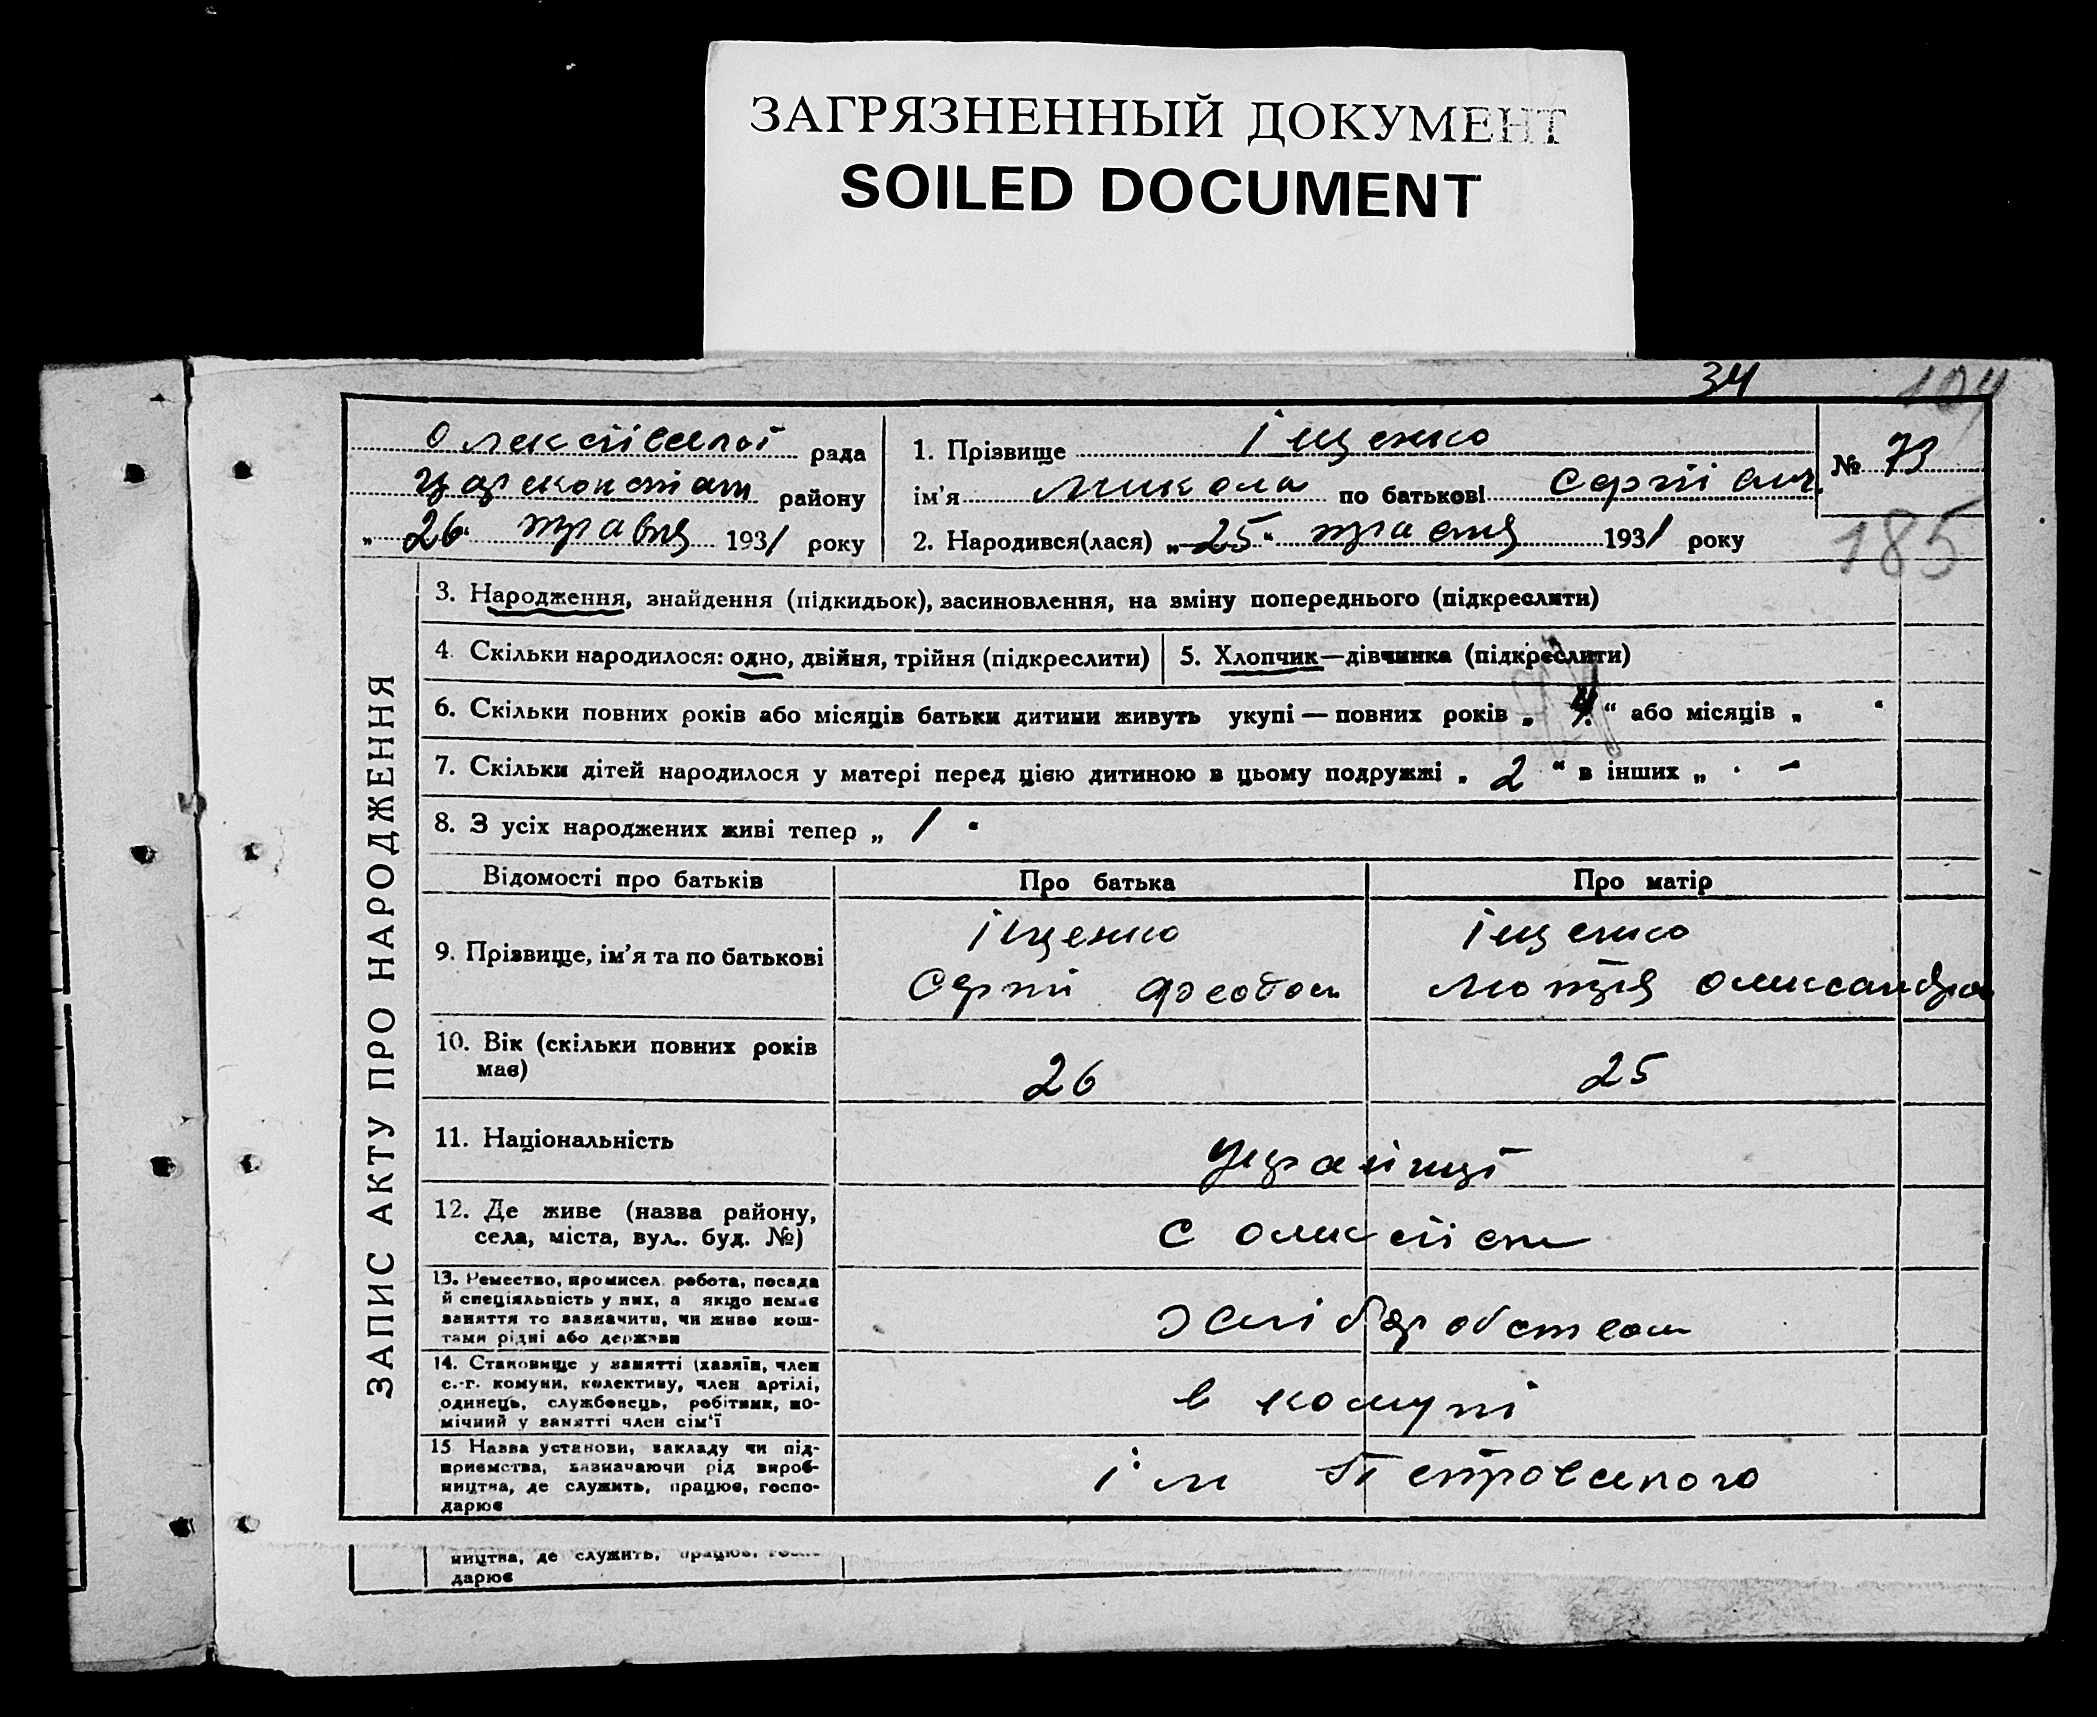 ЗАГРЯЗНЕННЫЙ ДОКУМЕНТ
SOILED DOCUMENT
34
104
Олексіївської рада
району
„26“ травня 1931 року
1. Прізвище Іщенко
ім’я Микола по батькові Сергієвич
№ 73
2. Народився(лася) „25“ травня 1931 року
185
ЗАПИС АКТУ ПРО НАРОДЖЕННЯ
3. Народження, знайдення (підкидьок), засиновлення, на зміну попереднього (підкреслити)
4. Скільки народилося: одно, двійня, трійня (підкреслити)
5. Хлопчик—дівчинка (підкреслити)
6. Скільки повних років або місяців батьки дитини живуть укупі — повних років „ 4 “ або місяців „ “
7. Скільки дітей народилося у матері перед цією дитиною в цьому подружжі „ 2 “ в інших „ -
8. З усіх народжених живі тепер „ 1 “
Відомості про батьків
Про батька
Про матір
9. Прізвище, ім’я та по батькові
Іщенко
Сергій
Іщенко
Мотря Олександров
10. Вік (скільки повних років
має)
26
25
11. Національність
Українці
12. Де живе (назва району,
села, міста, вул. буд. №)
с
13. Ремество, промисел, робота, посада
й спеціяльність у них, а якщо немає
заняття то зазначити, чи живе кош-
тами рідні або держави
хліборобством
14. Становище у занятті (хазяїн, член
с.-г. комуни, колективу, член артілі,
одинець, службовець, робітник, по-
мічний у занятті член сім’ї
в комуні
15 Назва установи, закладу чи під-
приємства, зазначаючи рід вироб-
ництва, де служить, працює, госпо-
дарює
ім Петровського
ництва, де служить, працює, госпо-
дарює